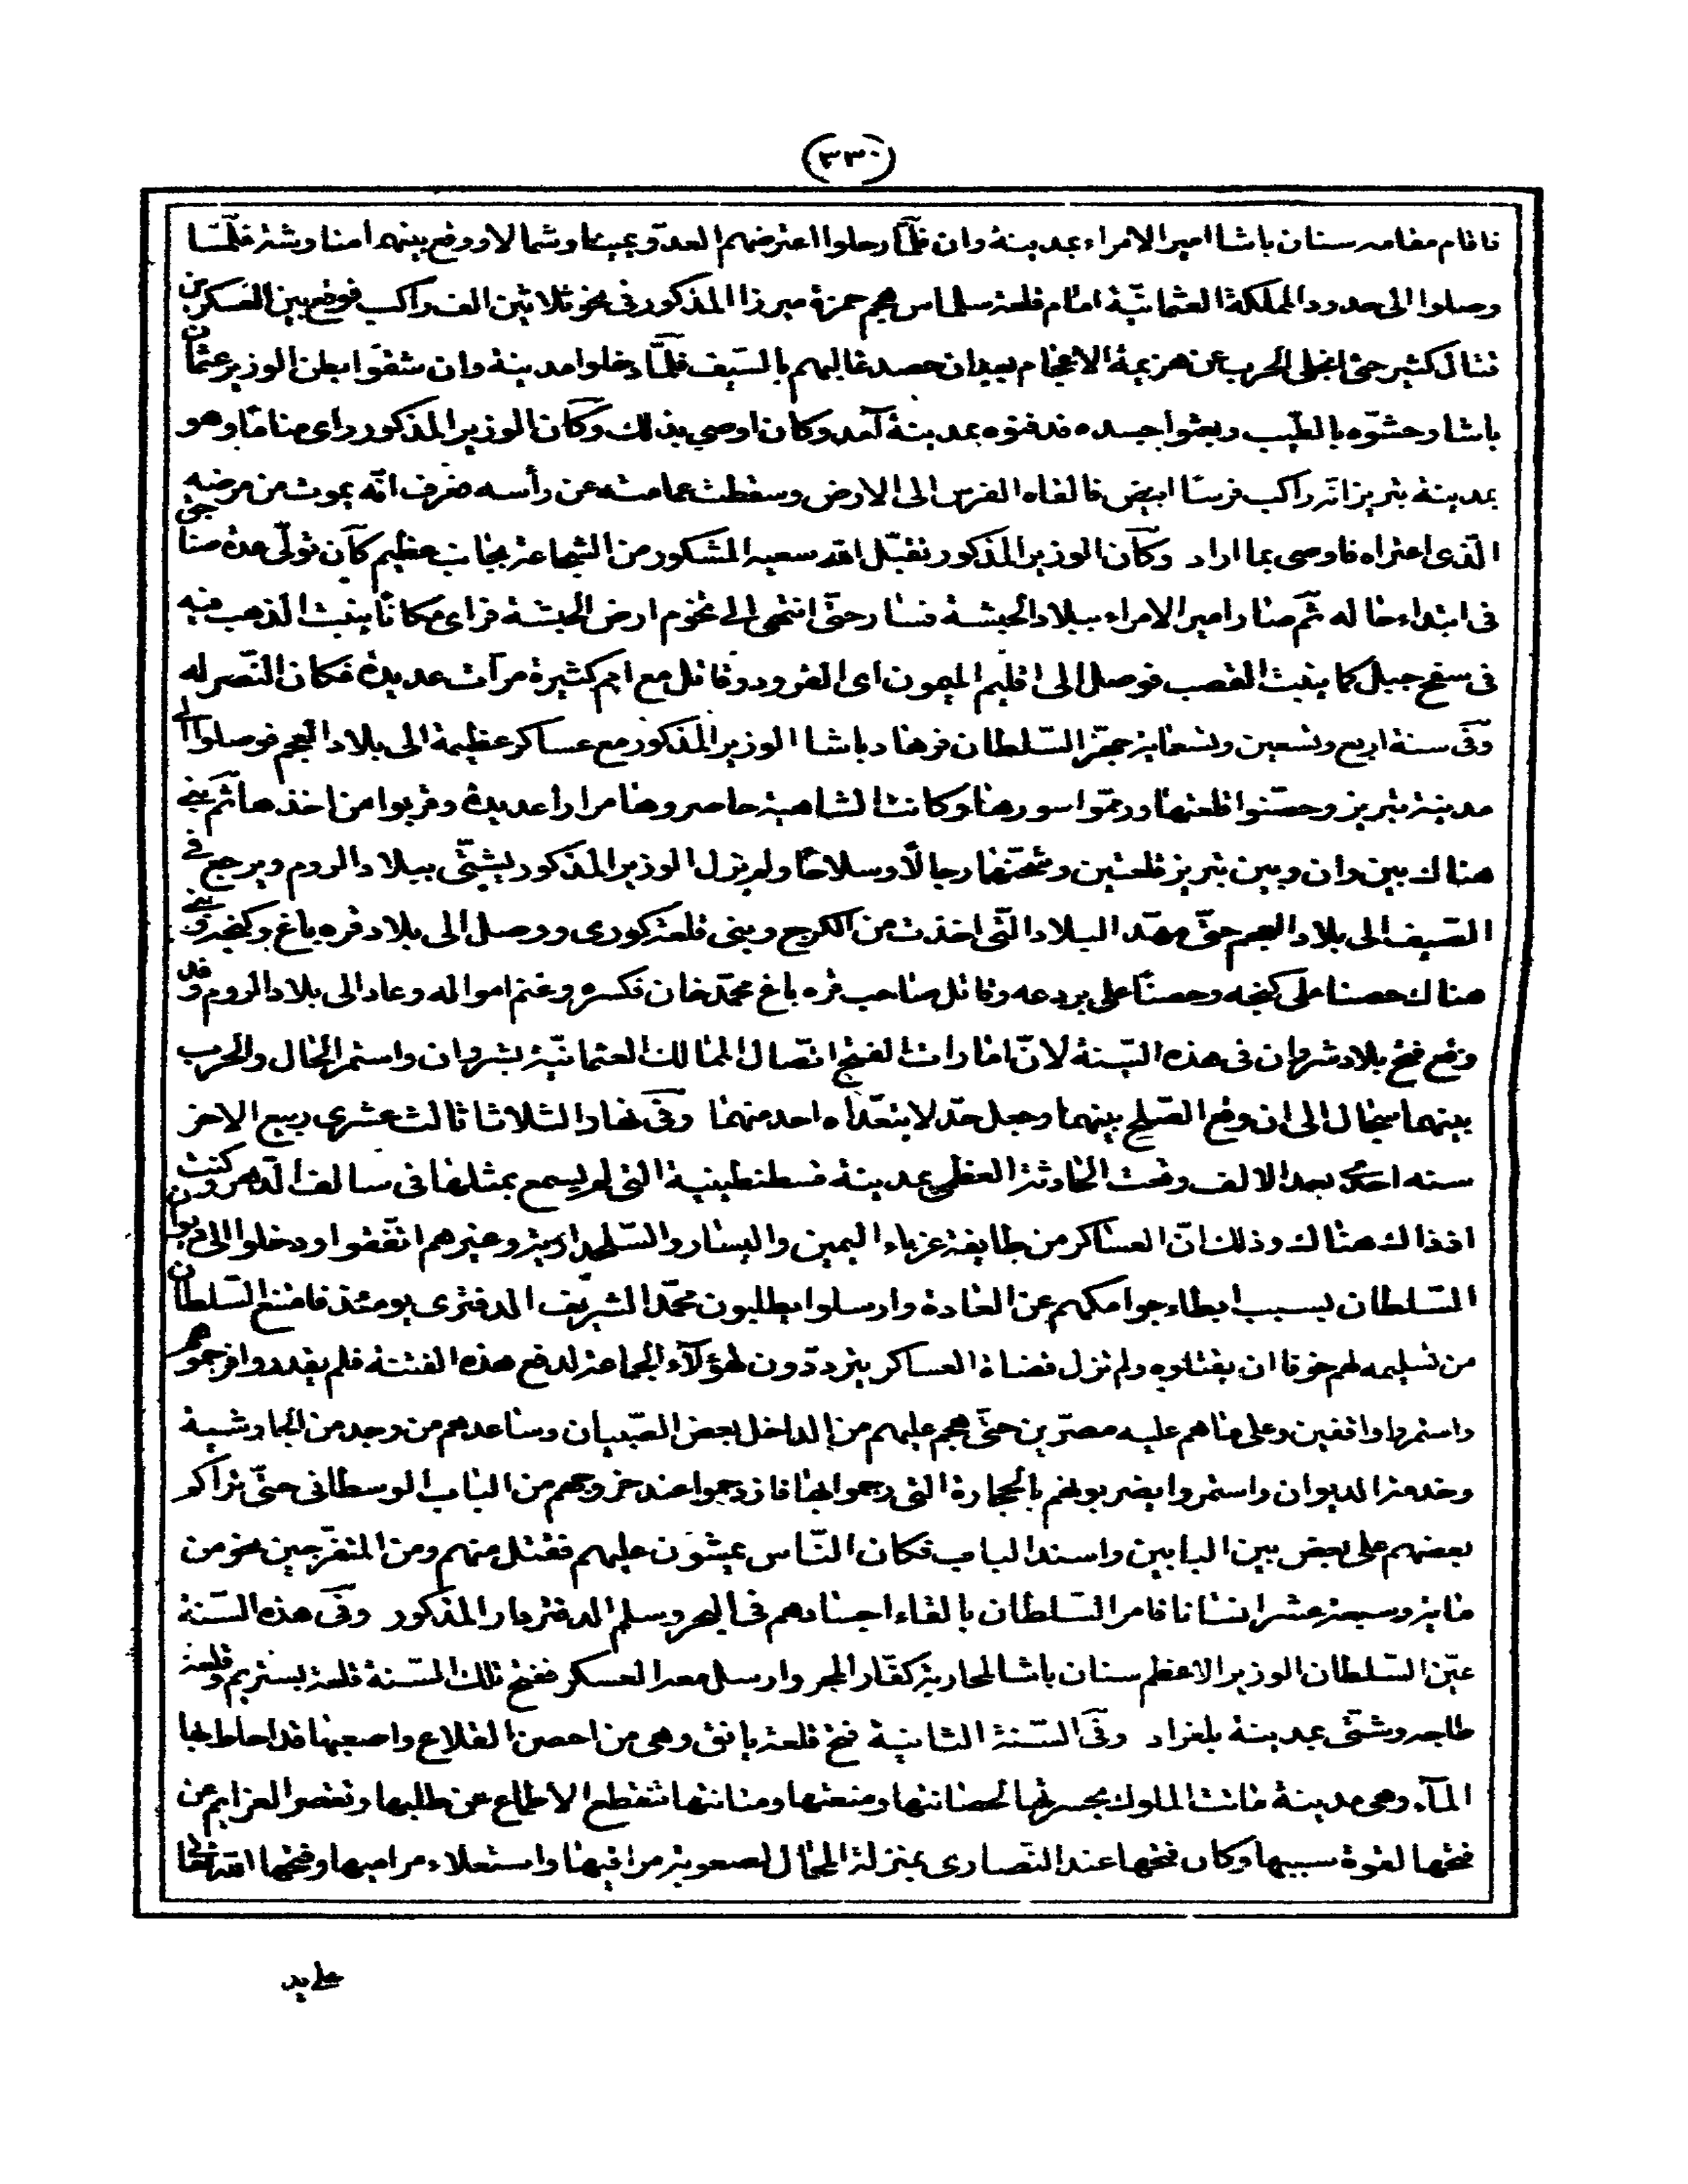 (٣٣٠)
فاقام مقامه سنان باشا امير الامراء بمدينة وان فلمّا رحلوا اعترضهم العدوّ يمينا وشمالا ووقع بينهم امناوشة فلمّا
وصلوا الى حدود المملكة العثمانيّة امام قلعة سلماس هجم حمزة ميرزا المذكور فى نحو ثلاثين الف راكب فوقع بين العسكرين
قتال كثير حتى انجلى الحرب عن هزيمة الاعجام بعد ان حصد غالبهم بالسّيف فلمّا دخلوا مدينة وان شقوا بطن الوزير عثمان
باشا وحشوّه بالطّيب وبعثوا جسده فدفنوه بمدينة آمد وكان اوصى بذلك وكان الوزير المذكور راى مناما وهو
بمدينة تبريز انّه راكب فرسا ابيض فالقاه الفرس الى الارض وسقطت عمامته عن رأسه فعرف انّه يموت من مرضه
الّذى اعتراه فاوصى بما اراد وكان الوزير المذكور تقبّل الله سعيه المشكور من الشجاعة بجانب عظيم كان تولّى عدة صناجق
فى ابتداء حاله ثمّ صار امير الامراء ببلاد الحبشة فسار حتّى انتهى الى تخوم ارض الحبشة فراى مكانا ينبت الذهب فيه
فى سفح جبل كما ينبت القصب فوصل الى اقليم الميمون اى القرود وقاتل مع امم كثيرة مرّات عديدة فكان النّصر له
وفى سنة اربع وتسعين وتسعماية جهّز السّلطان فرهاد باشا الوزير المذكور مع عساكر عظيمة الى بلاد العجم فوصلوا الى
مدينة تبريز وحصّنوا قلعتها ورمّوا سورها وكانت الشاهية حاصروها مرارا عديدة وقربوا من اخذها ثم بنى
هناك بين وان وبين تبريز قلعتين وشحنها رجالا وسلاحا ولم يزل الوزير المذكور يشتّى ببلاد الروم ويرجع فى
الصّيف الى بلاد العجم حتّى مهّد البلاد الّتى اخذت من الكرج وبنى قلعة كورى ووصل الى بلاد قره باغ وكنجه وبنى
هناك حصنا على كنجه وحصنا على بردعه وقاتل صاحب قره باغ محمّد خان فكسره وغنم امواله وعاد الى بلاد الروم وقد
وقع فتح بلاد شروان فى هذه السّنة لانّ امارات الفتح اتّصال الممالك العثمانيّة بشروان واستمر الحال والحرب
بينهما سجال الى ان وقع الصّلح بينهما وجعل حدّ لا يتعدّاه احد منهما وفى نهار الثلاثا ثالث عشرى ربيع الاخر
سنه احدى بعد الالف وقعت الحادثة العظمى بمدينة قسطنطينية التى لم يسمع بمثلها فى سالف الدّهر وكنت
اذ ذاك هناك وذلك انّ العساكر من طايفة غرباء اليمين واليسار والسّلحدارية وغيرهم اتّفقوا ودخلوا الى ديوان
السّلطان بسبب ابطاء جوامكهم عن العادة وارسلوا يطلبون محمّد الشريف الدفترى يومئذ فامتنع السّلطان
من تسليمه لهم خوفا ان يقتلوه ولم تزل قضاة العساكر يتردّدون لهؤلاء الجماعة لدفع هذه الفتنة فلم يقدروا فرجموهم
واستمروا واقفين وعلى ما هم عليه مصرّين حتّى هجم عليهم من الداخل بعض الصّبيان وساعدهم من وجد من الجاوشية
وخدمة الديوان واستمروا يضربونهم بالحجارة التى رجموا بها فازدحموا عند خروجهم من الباب الوسطانى حتّى تراكم
بعضهم على بعض بين البابين واسند الباب فكان النّاس يمشون عليهم فقتل منهم ومن المتفرّجين نحو من
ماية وسبعة عشر انسانا فامر السّلطان بالقاء اجسادهم فى البحر وسلم الدفتردار المذكور وفى هذه السّنة
عيّن السّلطان الوزير الاعظم سنان باشا لمحاربة كفّار المجر وارسل معه العسكر ففتح تلك السّنة قلعة بستريم وقلعة
طاجه وشتّى بمدينة بلغراد وفى السّنة الثانية فتح قلعة يانق وهى من احصن القلاع واصعبها قد احاط بها
المآء وهى مدينة ماتت الملوك بحسرتها لحصانتها ومنعتها ومتانتها تنقطع الاطماع عن طلبها وتقصر العزايم عن
فتحها لقوة سببها وكان فتحها عند النّصارى بمنزلة المحال لصعوبة مراقيها واستعلاء مراميها وفتحها الله تعالى
على يد